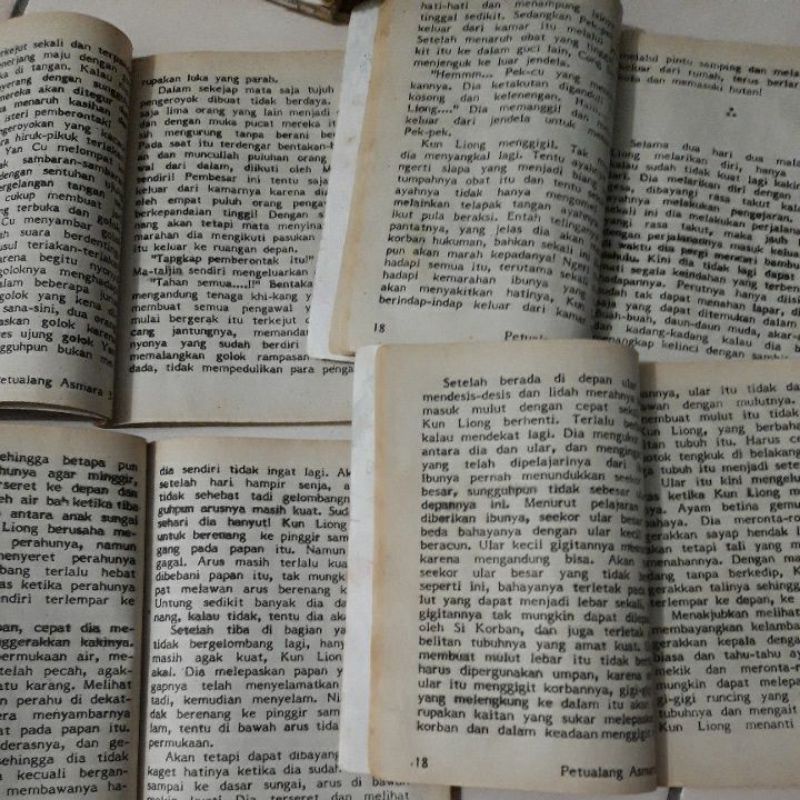 rkejut sekali dan terpe
nerjang maju dengan
a di tangan. Kalau
yerang dengan sunggu
mereka akan ditegur
a menaruh kasihan
isteri pemberontak!
engeroyokan yang ka
a hiruk-pikuk terjad
Yan Cu melompat
sambaran-samba
dengan sentuhan u
ergelangan tangan
cukup membuat
terbuka dan golok
Cu menyambar golo
h suara berdentin
usul teriakan-teriak
arena begitu nyon
goloknya menghada
alam beberapa jur
golok yang kena d
sana-sini, dua oran
askan golok karen
res ujung golok Ya
gguhpun bukan me
etualang Asmara 3
rupakan luka yang parah.
Dalam sekejap mata saja tujuh
pengeroyok dibuat tidak berdaya.
saja lima orang yang lain menjadi
dengan muka pucat mereka it
ih mengurung tanpa berani ber
Pada saat itu terdengar bentakan-b
an dan muncullah puluhan orang
wal dari dalam, diikuti oleh M
sendiri! Pembesar ini tentu saja
keluar dari kamarnya karena di
oleh empat puluh orang penga
berkepandaian tinggi! Dengan s
nang akan tetapi mata menyina
marahan dia mengikuti pasukan
itu keluar ke ruangan depan.
"Tangkap pemberontak itu!"
Ma-taijin sendiri mengeluarkan
"Tahan semua....!" Bentaka
mengandung tenaga khi-kang y
membuat semua pengawal y
mulai bergerak itu terkejut d
cang jantungnya, memandan
nyonya yang sudah berdiri
malangkan golok rampasan
dada, tidak mempedulikan para penga
hati-hati dan menampung isinya
tinggal sedikit. Sedangkan Pek-pek
keluar dari kamar itu melalui
Setelah menaruh obat yang tinggal
kit itu ke dalam guci lain, Cong
menjenguk ke luar jendela.
"Hemmm... Pek-cu yang mene
kannya. Dia ketakutan diganduli
kosong dan kelenengan. Hai,
Liong...." Dia memanggil dan
keluar dari jendela untuk me
Pek-pek.
Kun Liong menggigil. Tak m
dia menyangkal lagi. Tentu ayah
ngerti siapa yang menjadi biang
tumpahnya obat itu dan tentu
ayahnya tidak hanya mengome
melainkan telapak tangan ayahn
ikut pula beraksi. Entah telinga
pantatnya, yang jelas dia akan
korban hukuman, bahkan sekali in
pun akan marah kepadanya! Ngeri
hadapi semua itu, terutama sekali
hadapi kemarahan ibunya yang
akan menyakitkan hatinya, Kun
berindap-indap keluar dari kamar
18
Petualang
melalui pintu samping dan mela
keluar dari rumah, terus berlar
kota dan memasuki hutan!
Selama dua hari dua malam
Liong melarikan diri, hanya
kalau sudah tidak kuat lagi kakin
Dia melarikan diri dengan
gesa, dibayangi rasa takut kala
melakukan pengejaran.
kali ini dia melakukan perjalana
yang rasa takut, maka jauh
perjalanannya masuk keluar
di waktu dia pergi mencari bambu
Kini dia tidak lagi dapat
mati segala keindahan yang terben
hadapannya. Perutnya hanya diisi
sudah tak dapat menahan lapar, di
yang dapat ditemukan dalam
buah-buah, daun-daun muda, akar-a
dan kadang-kadang kalau dia b
nangkap kelinci dengan sambi
sehingga betapa pun
hunya agar minggir,
erseret ke depan dan
eh air bah ketika tiba
antara anak sungai
Liong berusaha me-
perahunya, namun
menyeret perahunya
bang terlalu hebat
as ketika perahunya
ndiri terlempar ke
pan, cepat dia me-
nggerakkan kakinya.
permukaan air, me-
telah pecah, agak-
atu karang. Melihat
n perahu di dekat-
era menyambarnya
pada papan itu.
derasnya, dan ge-
sehingga dia tidak
a kecuali bergan-
membawanya ha-
dia sendiri tidak ingat lagi. Ak
setelah hari hampir senja, a
tidak sehebat tadi gelombangn
guhpun arusnya masih kuat. Suda
sehari dia hanyut! Kun Liong
untuk berenang ke pinggir sam
gang pada papan itu. Namun
gagal. Arus masih terlalu kua
dibebani papan itu, tak mungk
pat melawan arus berenang k
Untung sedikit banyak dia da
nang, kalau tidak, tentu dia aka
Setelah tiba di bagian ya
tidak bergelombang lagi, hany
masih agak kuat, Kun Liong
akal. Dia melepaskan papan y
gapnya telah menyelamatkan
tadi, kemudian menyelam. Ni
dak berenang ke pinggir sam
lam, tentu di bawah arus tidak
permukaan.
Akan tetapi dapat dibayang
kaget hatinya ketika dia sudah
sampai ke dasar sungai, arus di bawah
makin kuat! Dia terseret dan melihat
Setelah berada di depan ular
mendesis-desis dan lidah merahnya
masuk mulut dengan cepat seka
Kun Liong berhenti. Terlalu ber
kalau mendekat lagi. Dia menguku
antara dia dan ular, dan mengingat
yang telah dipelajarinya dari
Ibunya pernah menundukkan seekor
besar, sungguhpun tidak sebesar
depannya ini. Menurut pelajaran
diberikan ibunya, seekor ular besar
beda bahayanya dengan ular kecil
beracun. Ular kecil gigitannya mem
karena mengandung bisa. Akan
seekor ular besar yang tidak be
seperti ini, bahayanya terletak pada
lut yang dapat menjadi lebar sekali,
gigitannya tak mungkin dapat dilepas
oleh Si Korban, dan juga terletak
belitan tubuhnya yang amat kuat.
membuat mulut lebar itu tidak ber
harus dipergunakan umpan, karena
ular itu menggigit korbannya, gigi-gigi
yang melengkung ke dalam itu akan
rupakan kaitan yang sukar melepaskan
korban dan dalam keadaan menggigit
18
Petualang Asmara
annya, ular itu tidak da
bawan dengan mulutnya.
membuat mulut itu tidak
Kun Liong, yang berbaha
itan tubuh itu. Harus ce
notok tengkuk di belakang
ga tubuh itu menjadi sete
Ular itu kini mengelu
as ketika Kun Liong m
a. Ayam betina gemuk
bahaya. Dia meronta-ro
gerakkan sayap hendak l
akan tetapi tali yang m
menahannya. Dengan ma
dang tanpa berkedip, K
gerakkan talinya sehingga
terlempar ke depan, ke
Menakjubkan melihat
membayangkan kelamba
gerakkan kepala dengan
biasa dan tahu-tahu ay
mekik dan meronta-r
mungkin dapat melepa
gigi runcing yang
tubuhnya dan mengait
Kun Liong menanti